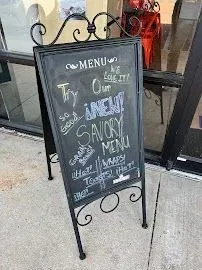 MENU
WE
LOVE IT!
Try Our
SO
GOOD
NEW!
SAVORY
MENU
WRAPS!
TOASTS!
HOT!